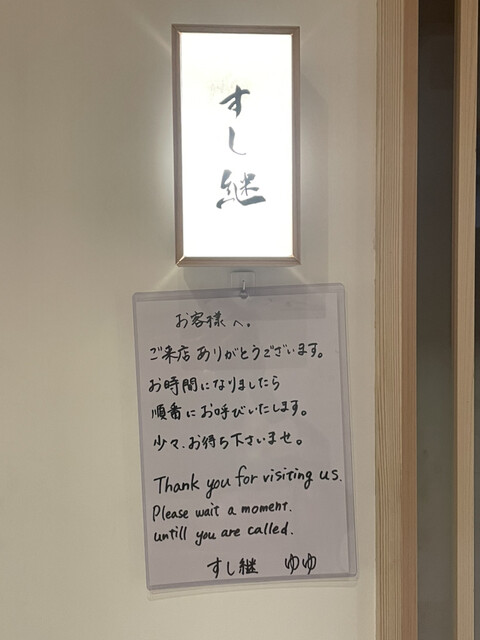 すし継
お客様へ。
ご来店ありがとうございます。
お時間になりましたら
順番にお呼びいたします。
少々、お待ち下さいませ。
Thank you for visiting us.
Please wait a moment.
untill you are called.
すし継 ゆゆ